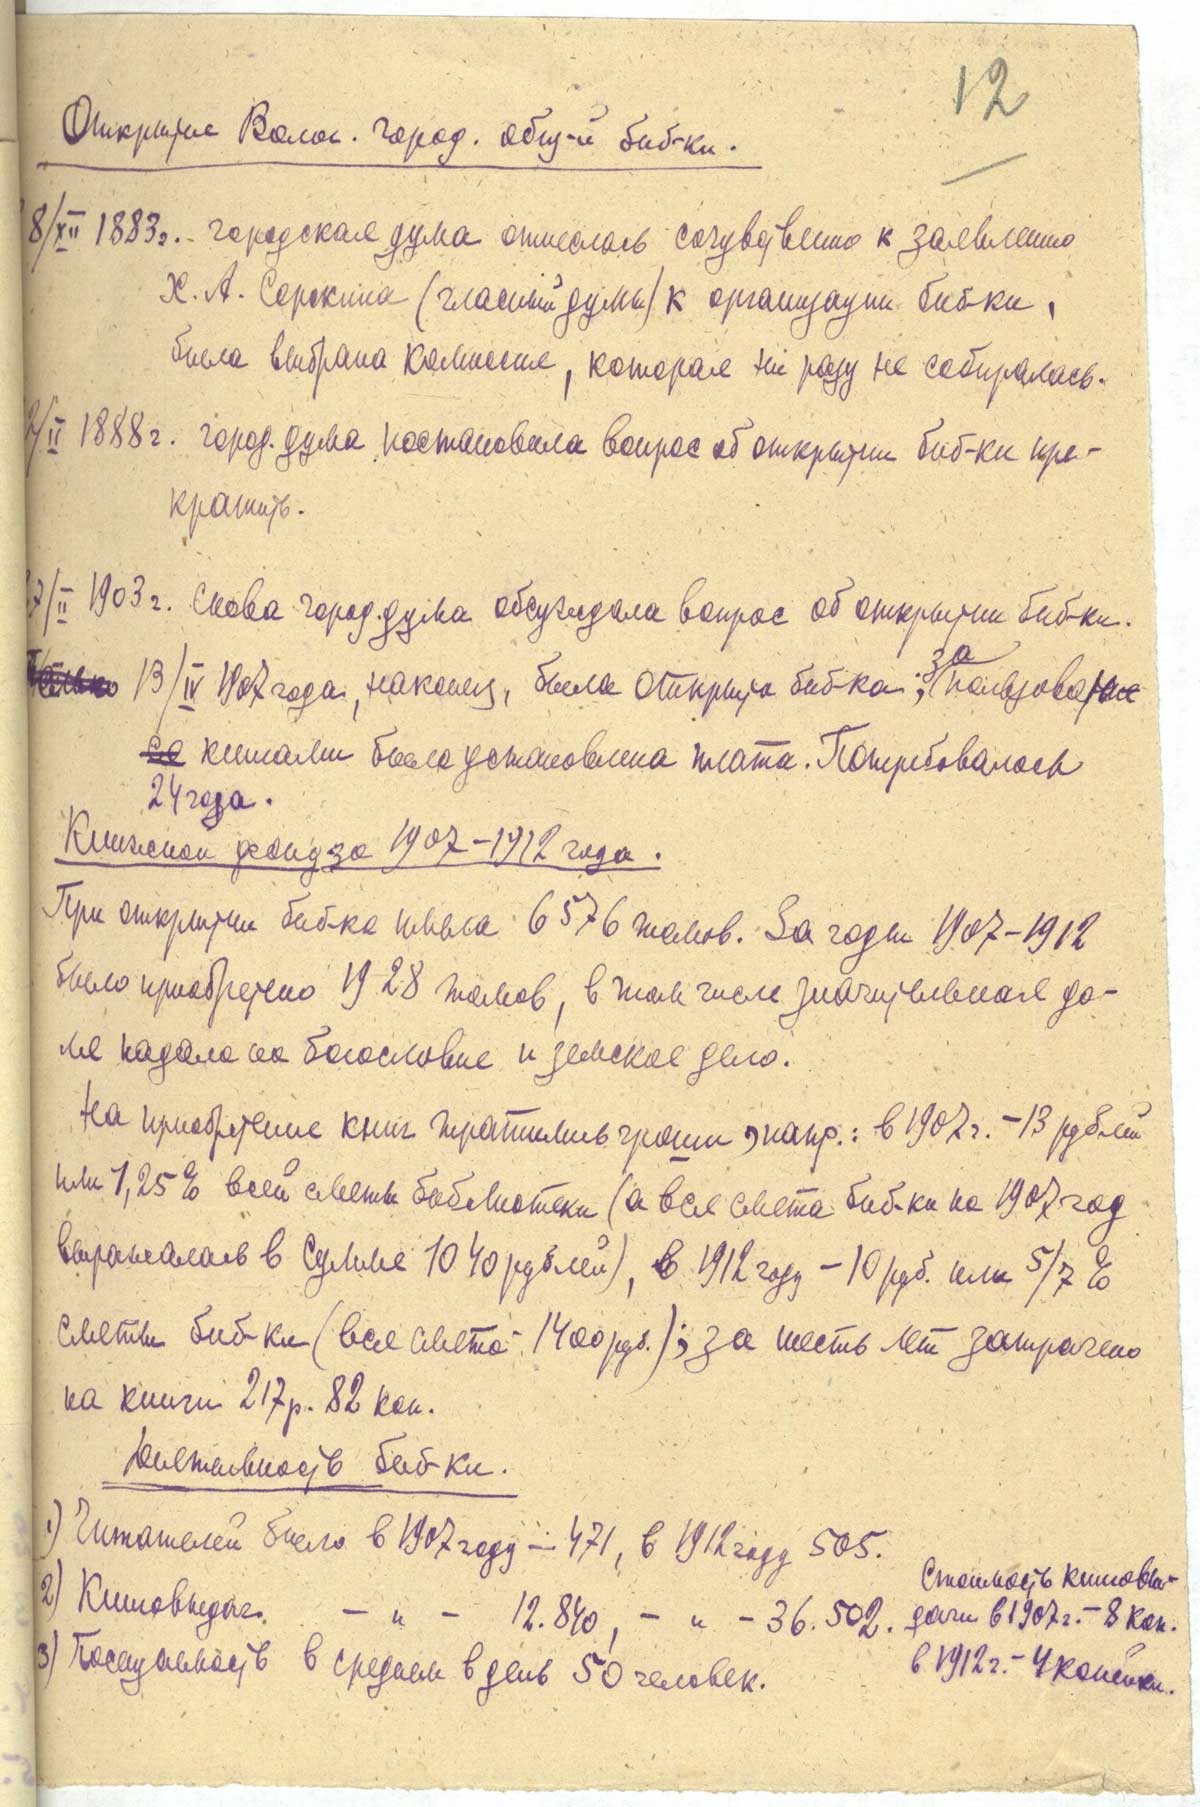 12
Открытие Волог. город. общ-й биб-ки.
8/XII 1883г. - городская дума отнеслась сочувственно к заявлению
Х. А. Сорокина (гласный думы) к организации биб-ки,
была выбрана комиссия, которая ни разу не собиралась.
/II 1888г. город. дума постановила вопрос об открытии биб-ки пре-
кратить.
7/II 1903г. Снова город. дума обсуждала вопрос об открытии биб-ки.
Только 13/IV 1907 года, наконец, была открыта биб-ка; за пользование
со книгами была установлена плата. Потребовалось
24 года.
Книжной фонд за 1907-1912 года.
При открытии биб-ка имела 6576 томов. За годы 1907-1912
было приобретено 1928 томов, в том числе значительная до-
ля падала на богословие и земское дело.
На приобретение книг тратились гроши, напр.: в 1907г. - 13 рублей
или 1,25% всей сметы библиотеки (а вся смета биб-ки на 1907 год
выражалась в сумме 1040 рублей), в 1912 году - 10 руб. или 5/7%
сметы биб-ки (вся смета - 1400 руб.); за шесть лет затрачено
на книги 217р. 82 коп.
Деятельность биб-ки.
1) Читателей было в 1907 году - 471, в 1912 году 505.
2) Книговыдач. - " - 12.840, - " - 36.502. Стоимость книговы-
дачи в 1907г. - 8 коп.
3) Посещаемость в среднем в день 50 человек. в 1912г. - 4 копейки.